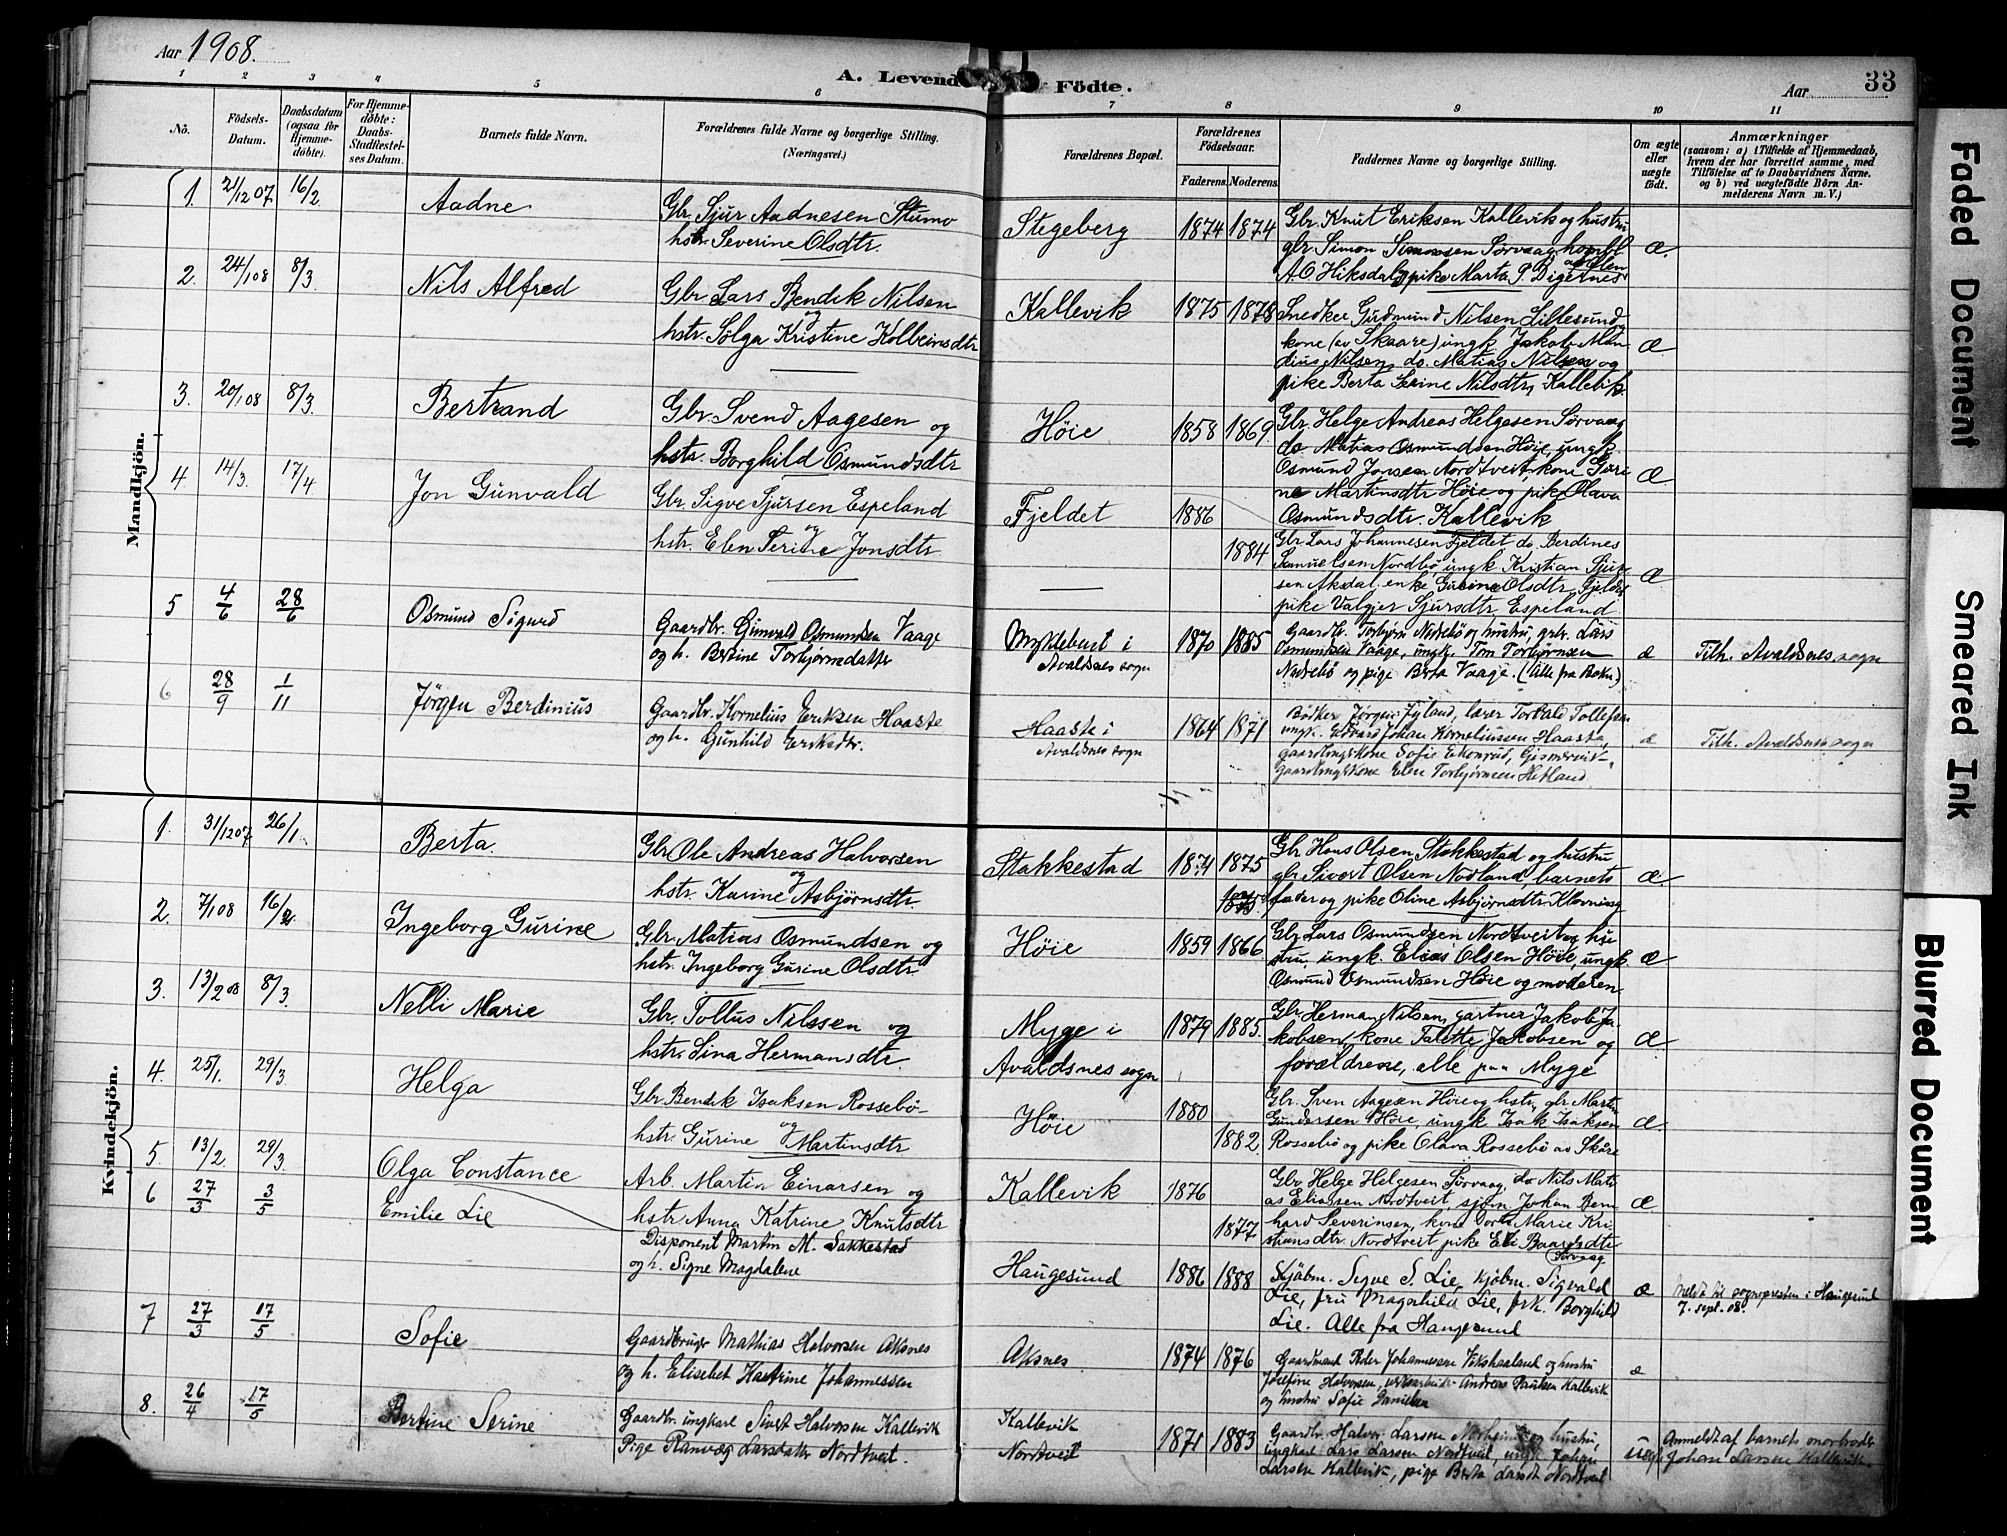 Aar 1908.
A. Levende Födte.
Aar
33
1 2 3 4 5 6 7 8 9 10 11
No.
Födsels-Datum.
Daabsdatum (ogsaa for Hjemme-döbte).
For Hjemme-döbte: Daabs-Stadfæstel-ses Datum.
Barnets fulde Navn.
Forældrenes fulde Navne og borgerlige Stilling. (Næringsvei.)
Forældrenes Bopæl.
Forældrenes Födselsaar.
Faderens. Moderens.
Faddernes Navne og borgerlige Stilling.
Om ægte eller uægte födt.
Anmærkninger
(saasom: a) i Tilfælde af Hjemmedaab,
hvem der har forrettet samme, med
Tilföielse af to Daabsvidners Navne.
og b) ved uægtefödte Börn An-
melderens Navn m. V.)
Mandkjön.
1. 21/12 07 16/2 Aadne
Gbr. Sjur Aadnesen Stumo
hstr. Severine Olsdtr.
Stegeberg 1874 1874
Gbr. Knut Eriksen Kallevik og hustru
gbr. Simon Simonsen Sørvaag
A.O. Hiksdal pike Marta P. Digernes
Æ.
2. 24/1 08 8/3 Nils Alfred
Gbr. Lars Bendik Nilsen
og
hstr. Solga Kristine Kolbeinsdtr
Kallevik 1875 1878
Snedker Gudmund Nilsen Lillesund
kone (av Skaare) ungk Jakob Man-
dius Nilsen, do. Matias Nilsen og
pike Berta Serine Nilsdtr, Kallevik.
Æ
3. 20/1 08 8/3 Bertrand
Gbr. Svend Aagesen og
hstr. Borghild Osmundsdtr
Høie 1858 1869
Gbr. Helge Andreas Helgesen Sørvaag
do. Matias Osmundsen Høie, ungk
Osmund Jonsen Nordtveit, kone Guri-
ne Martinsdtr Høie og pike Olava
Osmundsdtr. Kallevik
Æ
4. 14/3. 17/4 Jon Gunvald
Gbr. Sigve Sjursen Espeland
og
hstr. Elen Serine Jonsdtr.
Fjeldet 1886 1884
Gbr Lars Johannesen Fjeldet do. Berdines
Samuelsen Nordbø, ungk Kristian Sjur-
sen Aksdal enke Gurine Olsdtr, Fjeldet
pike Valgjer Sjursdtr Espeland
Æ
5 4/6 28/6 Osmund Sigurd
Gaardbr. Gunvald Osmundsen Vaage
og h. Bertine Torbjørnsdatter
Myklebust i
Avaldsnes sogn
1870 1885
Gaardbr. Torbjørn Nedrebø og hustru, grbr. Lars
Osmundsen Vaage, ungk. Tom Torbjørnsen
Nedrebø og pige Berta Vaage. (Alle fra Bokn.)
æ
Tilh. Avaldsnes sogn
6 28/9 1/11 Jørgen Berdinius
Gaardbr. Kornelius Eriksen Haaste
og h. Gunhild Eriksdtr.
Haaste i
Avaldsnes sogn
1864 1871
Bødker Jørgen Jyland, lærer Torvald Tollefsen
ungk. Edvard Johan Korneliussen Haaste,
gaardbrugskone Sofie
gaardbrugskone Elen Torbjørnsen Hetland
æ
Tilh. Avaldsnes sogn
Kvindekjön.
1. 31/12 07 26/1. Berta.
Gbr Ole Andreas Halvorsen
og
hstr. Karine Asbjørnsdtr.
Stakkestad 1874 1875
1875
Gbr Hans Olsen Stakkestad og hustru
gbr Sivert Olsen Nodland, barnets
fader og pike Oline Asbjørnsdtr. Klovning
Æ.
2. 7/1 08 16/2 Ingeborg Gurine
Gbr. Matias Osmundsen og
hstr. Ingeborg Gurine Olsdtr
Høie 1859 1866
Gbr Lars Osmundsen Nordtveit og hu-
stru, ungk. Elias Olsen Høie, ungk.
Osmund Osmundsen Høie og moderen.
Æ
3. 13/2 08 8/3. Nelli Marie
Gbr. Tollus Nilssen og
hstr. Lina Hermansdtr.
Myge i
Avaldsnes sogn
1879 1885.
Gbr Herman Nilsen, gartner Jakob Ja-
kobsen, kone Talette Jakobsen og
forældrene, alle paa Myge
Æ.
4. 25/1. 29/3. Helga
Gbr Bendik Isaksen Rossebø
og
hstr. Gurine Martinsdtr
Høie 1880 1882.
Gbr. Sven Aagesen Høie og hstr, gbr. Martin
Gundersen Høie, ungk Isak Isaksen
Rossebø og pike Olava Rossebø av Skåre
Æ.
5. 13/2. 29/3. Olga Constance
Arb. Martin Einarsen og
hstr. Anna Katrine Knutsdtr
Kallevik 1876 1877.
Gbr Helge Helgesen Sørvaag, do Nils Mati-
as Eliassen Nordtveit, sjøm. Johan Bern-
hard Severinsen, kone Dorte Marie Kri-
stiansdtr Nordtveit pike Eli Baardsdtr
Sørvaag
Æ
6 27/3 3/5 Emilie Lie
Disponent Martin M. Sakkestad
og h. Signe Magdalene
Haugesund 1886 1888
Skjøbm. Sigve S. Lie, kjøbm. Sigvald
Lie, fru Magnhild Lie, frk. Borghild
Lie. Alle fra Haugesund
æ
Meldt til sogneprester i Haugesund
7. sept. 08.
7 27/3 17/5 Sofie
Gaardbruger Mathias Halvorsen Aksnes
og h. Elisebet Katrine Johannessen
Aksnes. 1874 1876
Gaardmand Peder Johannessen Vikshaaland og hustru
Josefine Halvorsen, Andreas Paulsen Kallevik
og hustru Sofie Danielsen
æ
8. 26/4 17/5 Bertine Serine
Gaardbr. ungkarl Sivert Halvorsen Kallevik
Pige Ranveig Larsdatter Nordtveit.
Kallevik
Nordtveit
1871 1883
Gaardbr. Halvor Larsen og hustru,
ungkarl Lars Larsen Nordtveit, ungk Johan
Larsen Kallevik, pige Berta Larsdt. Nordtveit
uægt.
Anmeldt af barnets morbroder
Johan Larsen Kallevik.
Faded Document
Smeared Ink
Blurred Document